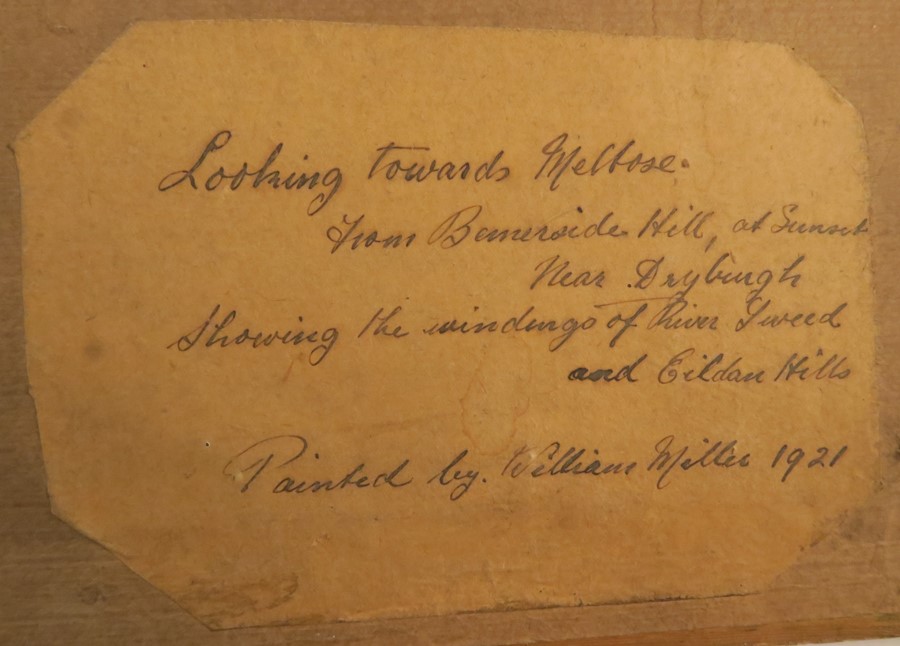 Looking towards Melrose.
From Bemerside Hill, at Sunset
Near Dryburgh
Showing the windings of River Tweed
and Eildon Hills
Painted by. William Miller 1921